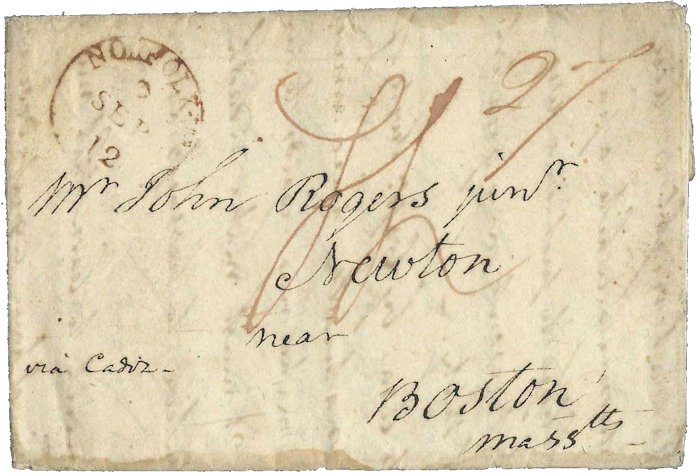 NORFOLK
SEP
12
27
Sh
Mr John Rogers junr
Newton
near
via Cadiz -
Boston
Masstts